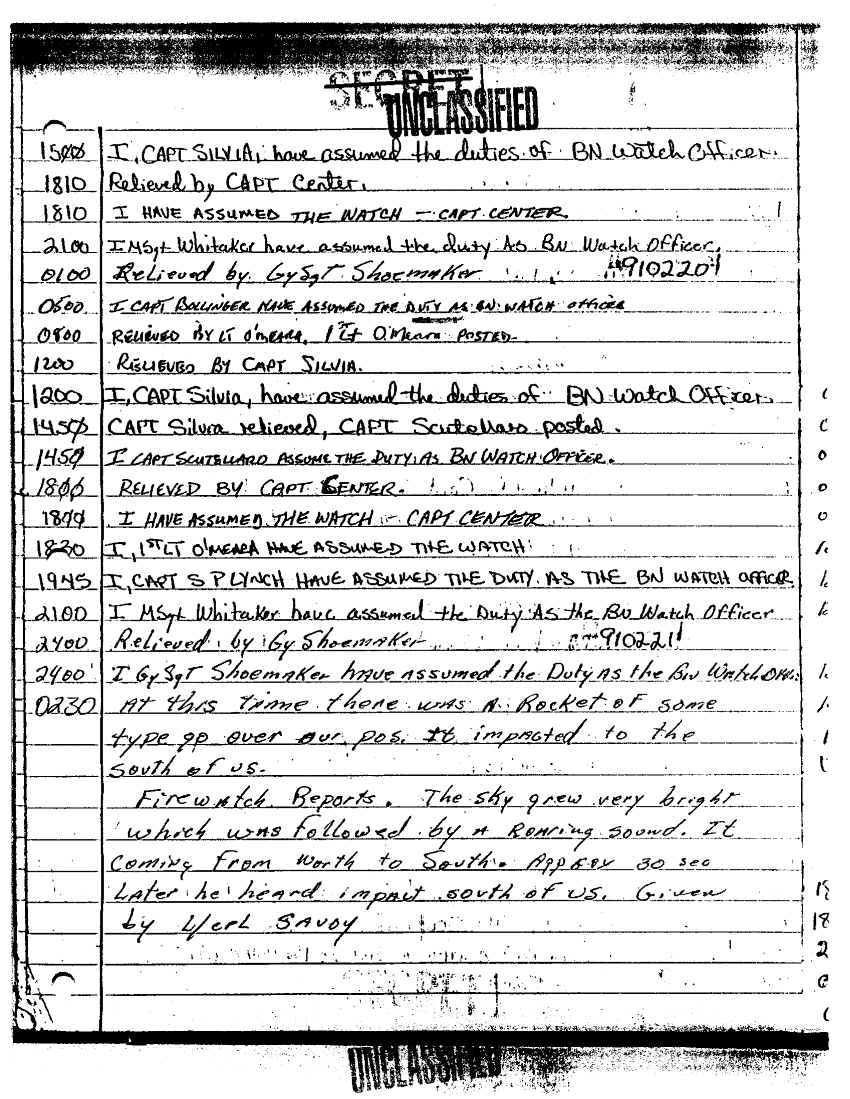 SECRET
UNCLASSIFIED
I, CAPT SILVIA, have assumed the duties of BN Watch Officer.
1810 Relieved by CAPT Center.
1810 I HAVE ASSUMED THE WATCH - CAPT CENTER.
2100 I MSgt Whitaker have assumed the duty As BN Watch Officer.
0100 Relieved by GySgT Shoemaker 910220
I CAPT BOLLINGER HAVE ASSUMED THE DUTY AS BN WATCH officer
0800 RELIEVED BY LT O'MEARA, 1st Lt O'Meara POSTED.
1200 RELIEVED BY CAPT SILVIA.
1200 I, CAPT Silvia, have assumed the duties of BN Watch Officer.
CAPT Silvia relieved, CAPT Scutellaro posted.
I CAPT SCUTELLARO ASSUME THE DUTY AS BN WATCH OFFICER.
RELIEVED BY CAPT CENTER.
I HAVE ASSUMED THE WATCH - CAPT CENTER
1830 I, 1ST LT O'MEARA HAVE ASSUMED THE WATCH
1945 I, CAPT S P LYNCH HAVE ASSUMED THE DUTY AS THE BN WATCH OFFICER
2100 I MSgt Whitaker have assumed the Duty As the BN Watch Officer
2400 Relieved by Gy Shoemaker 910221
2400 I GySgT Shoemaker have assumed the Duty As the BN Watch Offi.
0230 At this time there was A Rocket of some
type go over our pos. It impacted to the
south of us.
Firewatch Reports. The sky grew very bright
which was followed by A Roaring sound. It
coming from North to South. Approx 30 sec
Later he heard impact south of us. Given
by L/cpl SAVOY
SECRET
UNCLASSIFIED